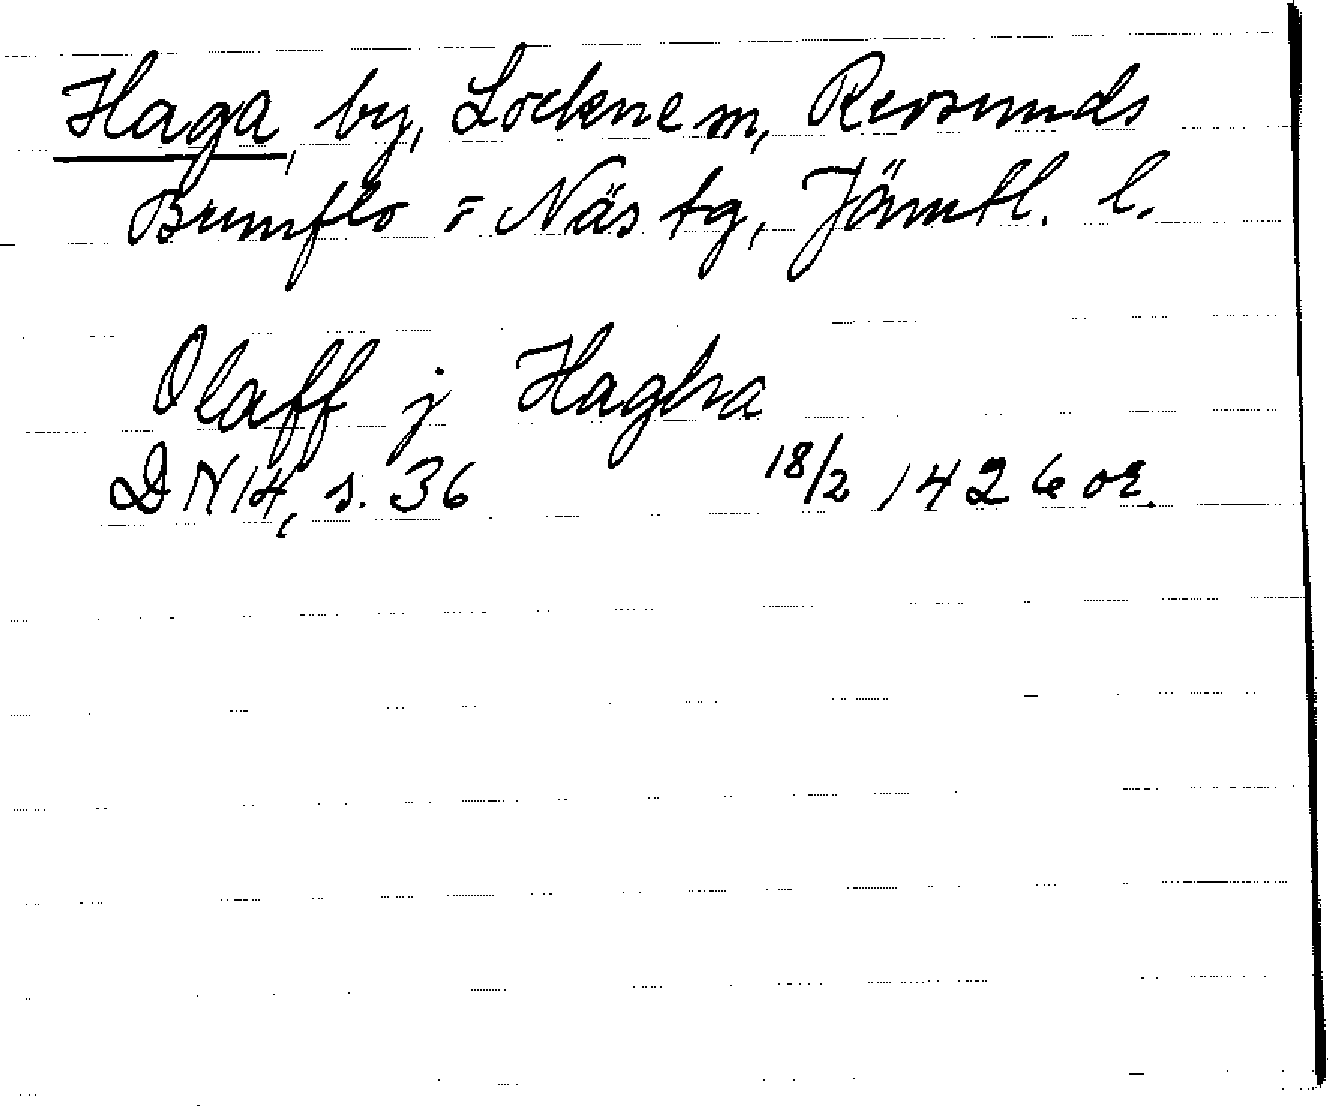 Haga, by, Lockne sn, Revsunds
Brunflo = Näs tg, Jämtl. l.
Olaff j Hagha
DN 14, s. 36 18/2 1426 or.